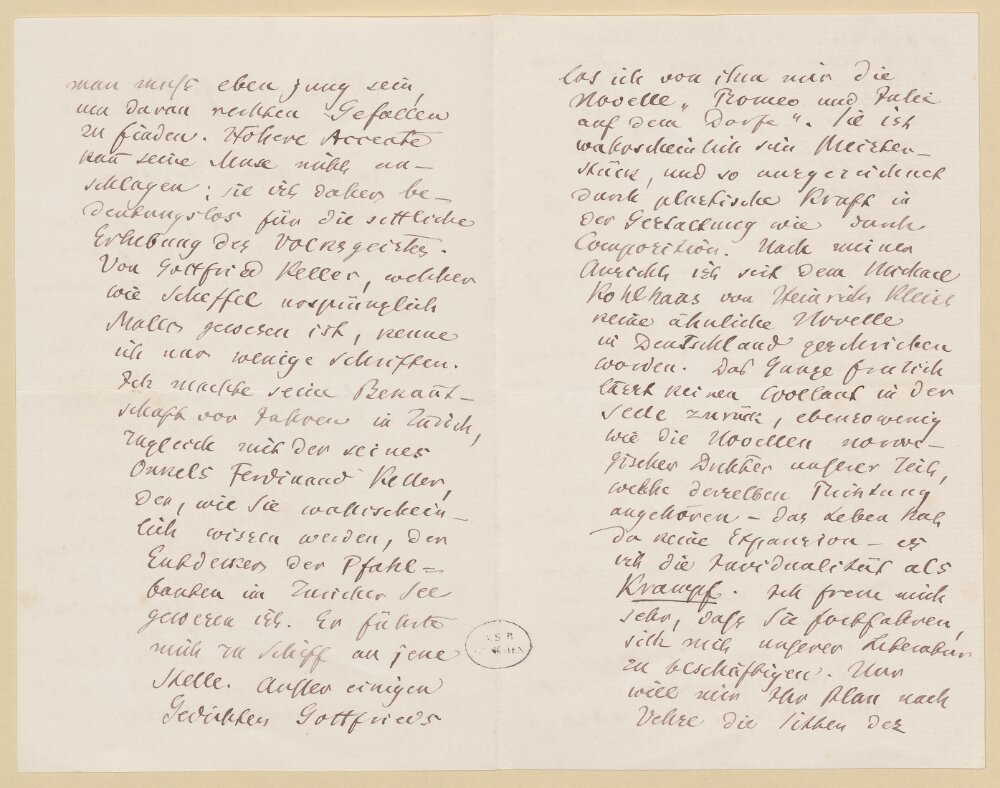 man muß eben jung sein,
um daran rechten Gefallen
zu finden. Höhere Accente
kañ seine Muse nicht an-
schlagen; sie ist daher be-
deutungslos für die sittliche
Erhebung des Volksgeistes.
Von Gottfried Keller, welcher
wie Scheffel ursprünglich
Maler gewesen ist, kenne
ich nur wenige Schriften.
Ich machte seine Bekañt-
schaft vor Jahren in Zürich,
zugleich mit der seines
Onkels Ferdinand Keller,
der, wie Sie wahrschein-
lich wissen werden, der
Entdecker der Pfahl=
bauten im Zuricher See
gewesen ist. Er führte
mich zu Schiff an jene
Stelle. Außer einigen
Gedichten Gottfrieds
las ich von ihm nur die
Novelle „Romeo und Julie
auf dem Dorfe". Sie ist
wahrscheinlich sein Meister-
stück, und so ausgezeichnet
durch plastische Kraft in
der Gestaltung wie durch
Composition. Nach meiner
Ansicht ist seit dem Michael
Kohlhaas von Heinrich Kleist
keine ähnliche Novelle
in Deutschland geschrieben
worden. Das Ganze freilich
lässt keinen Wollaut in der
Seele zurück, ebensowenig
wie die Novellen norwe-
gischer Dichter unserer Zeit,
welche derselben Richtung
angehören – das Leben hat
da keine Expansion – es
ist die Invidualität als
Krampf. Ich freue mich
sehr, daß Sie fortfahren,
sich mit unserer Literatur
zu beschäftigen. Nur
will mir Ihr Plan nach
die Sitten des